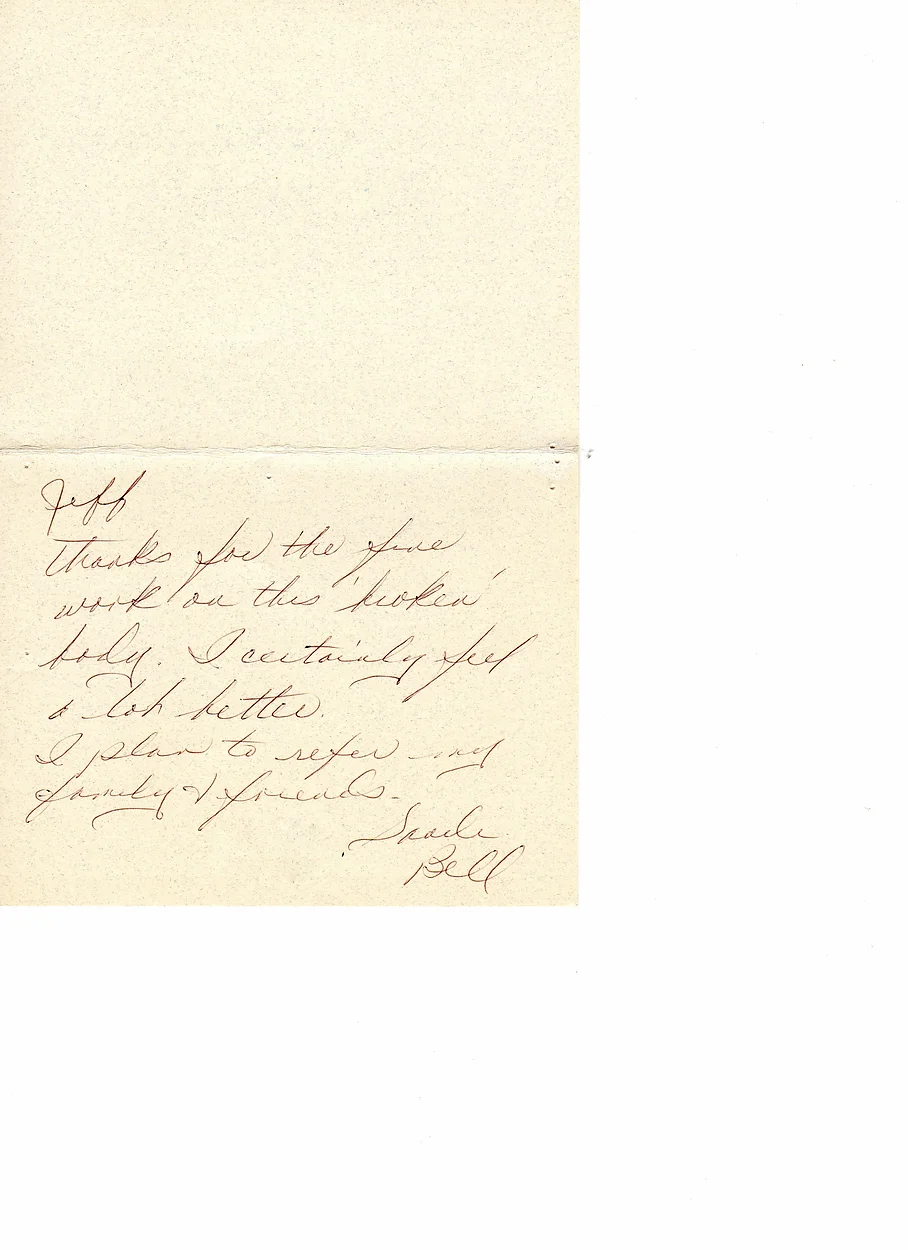 Jeff
Thanks for the fine
work on this 'broken'
body. I certainly feel
a lot better.
I plan to refer my
family & friends.
Bell